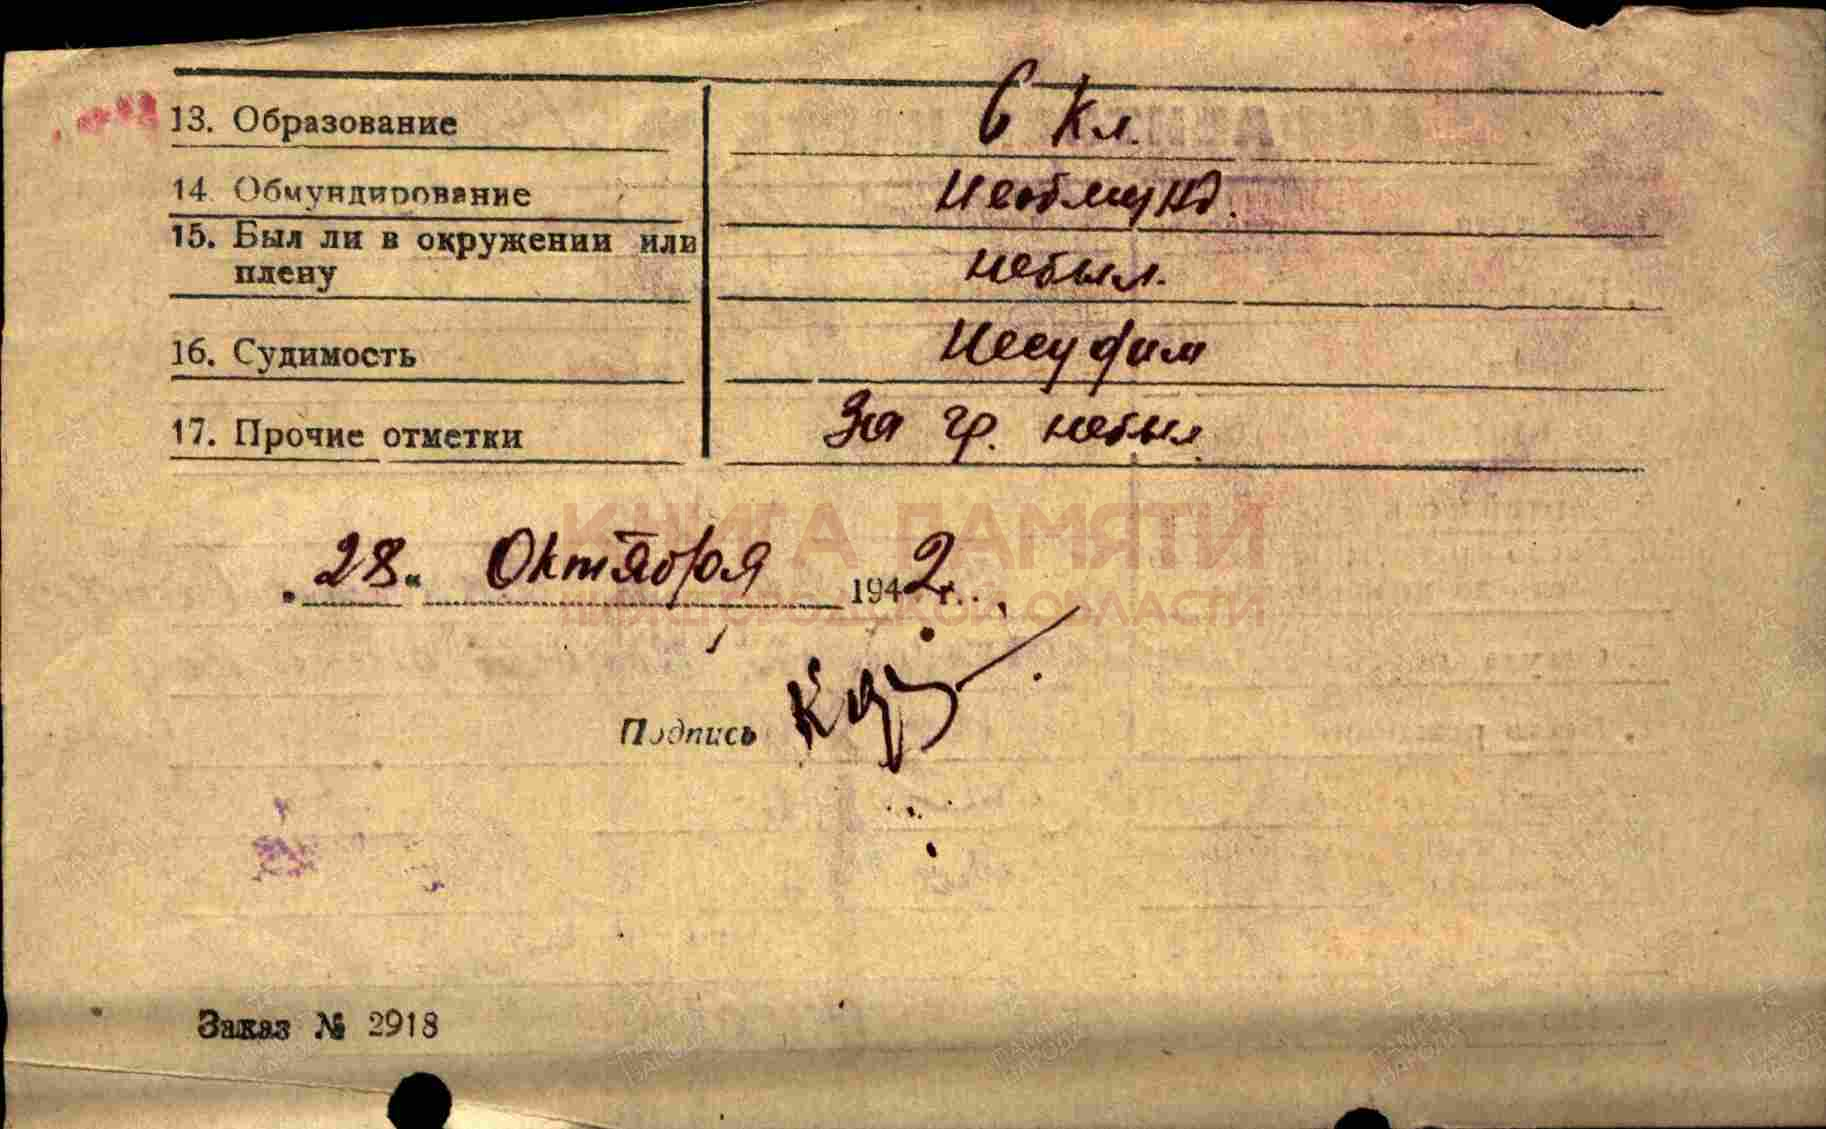 13. Образование 6 кл.
14. Обмундирование Необмунд.
15. Был ли в окружении или
плену небыл.
16. Судимость Несудим
17. Прочие отметки За гр. небыл
КНИГА ПАМЯТИ
„28“ Октября 1942 г.
НИЖЕГОРОДСКОЙ ОБЛАСТИ
Подпись
Заказ № 2918